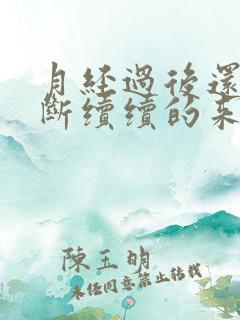 月經過後還
斷續續的來
陳玉明
未經同意禁止轉載